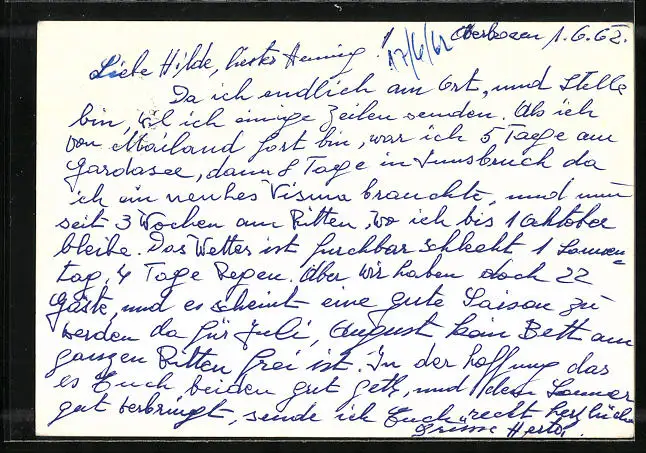 Oberbozen 1.6.62.
17/6/62
Liebe Hilde, lieber Henning!
Da ich endlich am Ort, und Stelle
bin, will ich einige Zeilen senden. Als ich
von Mailand fort bin, war ich 5 Tage am
Gardasee, dann 8 Tage in Innsbruck da
ich ein neuhes Visum brauchte, und nun
seit 3 Wochen am Ritten, wo ich bis 1 Oktober
bleibe. Das Wetter ist furchbar schlecht 1 Sonnen=
tag, 4 Tage Regen. Aber wir haben doch 22
Gäste, und es scheint eine gute Saison zu
werden da für Juli, August kein Bett am
ganzen Ritten frei ist. In der Hoffnung das
es Euch beiden gut geht, und den Sommer
gut verbringt, sende ich Euch recht herzliche
Grüsse Herta